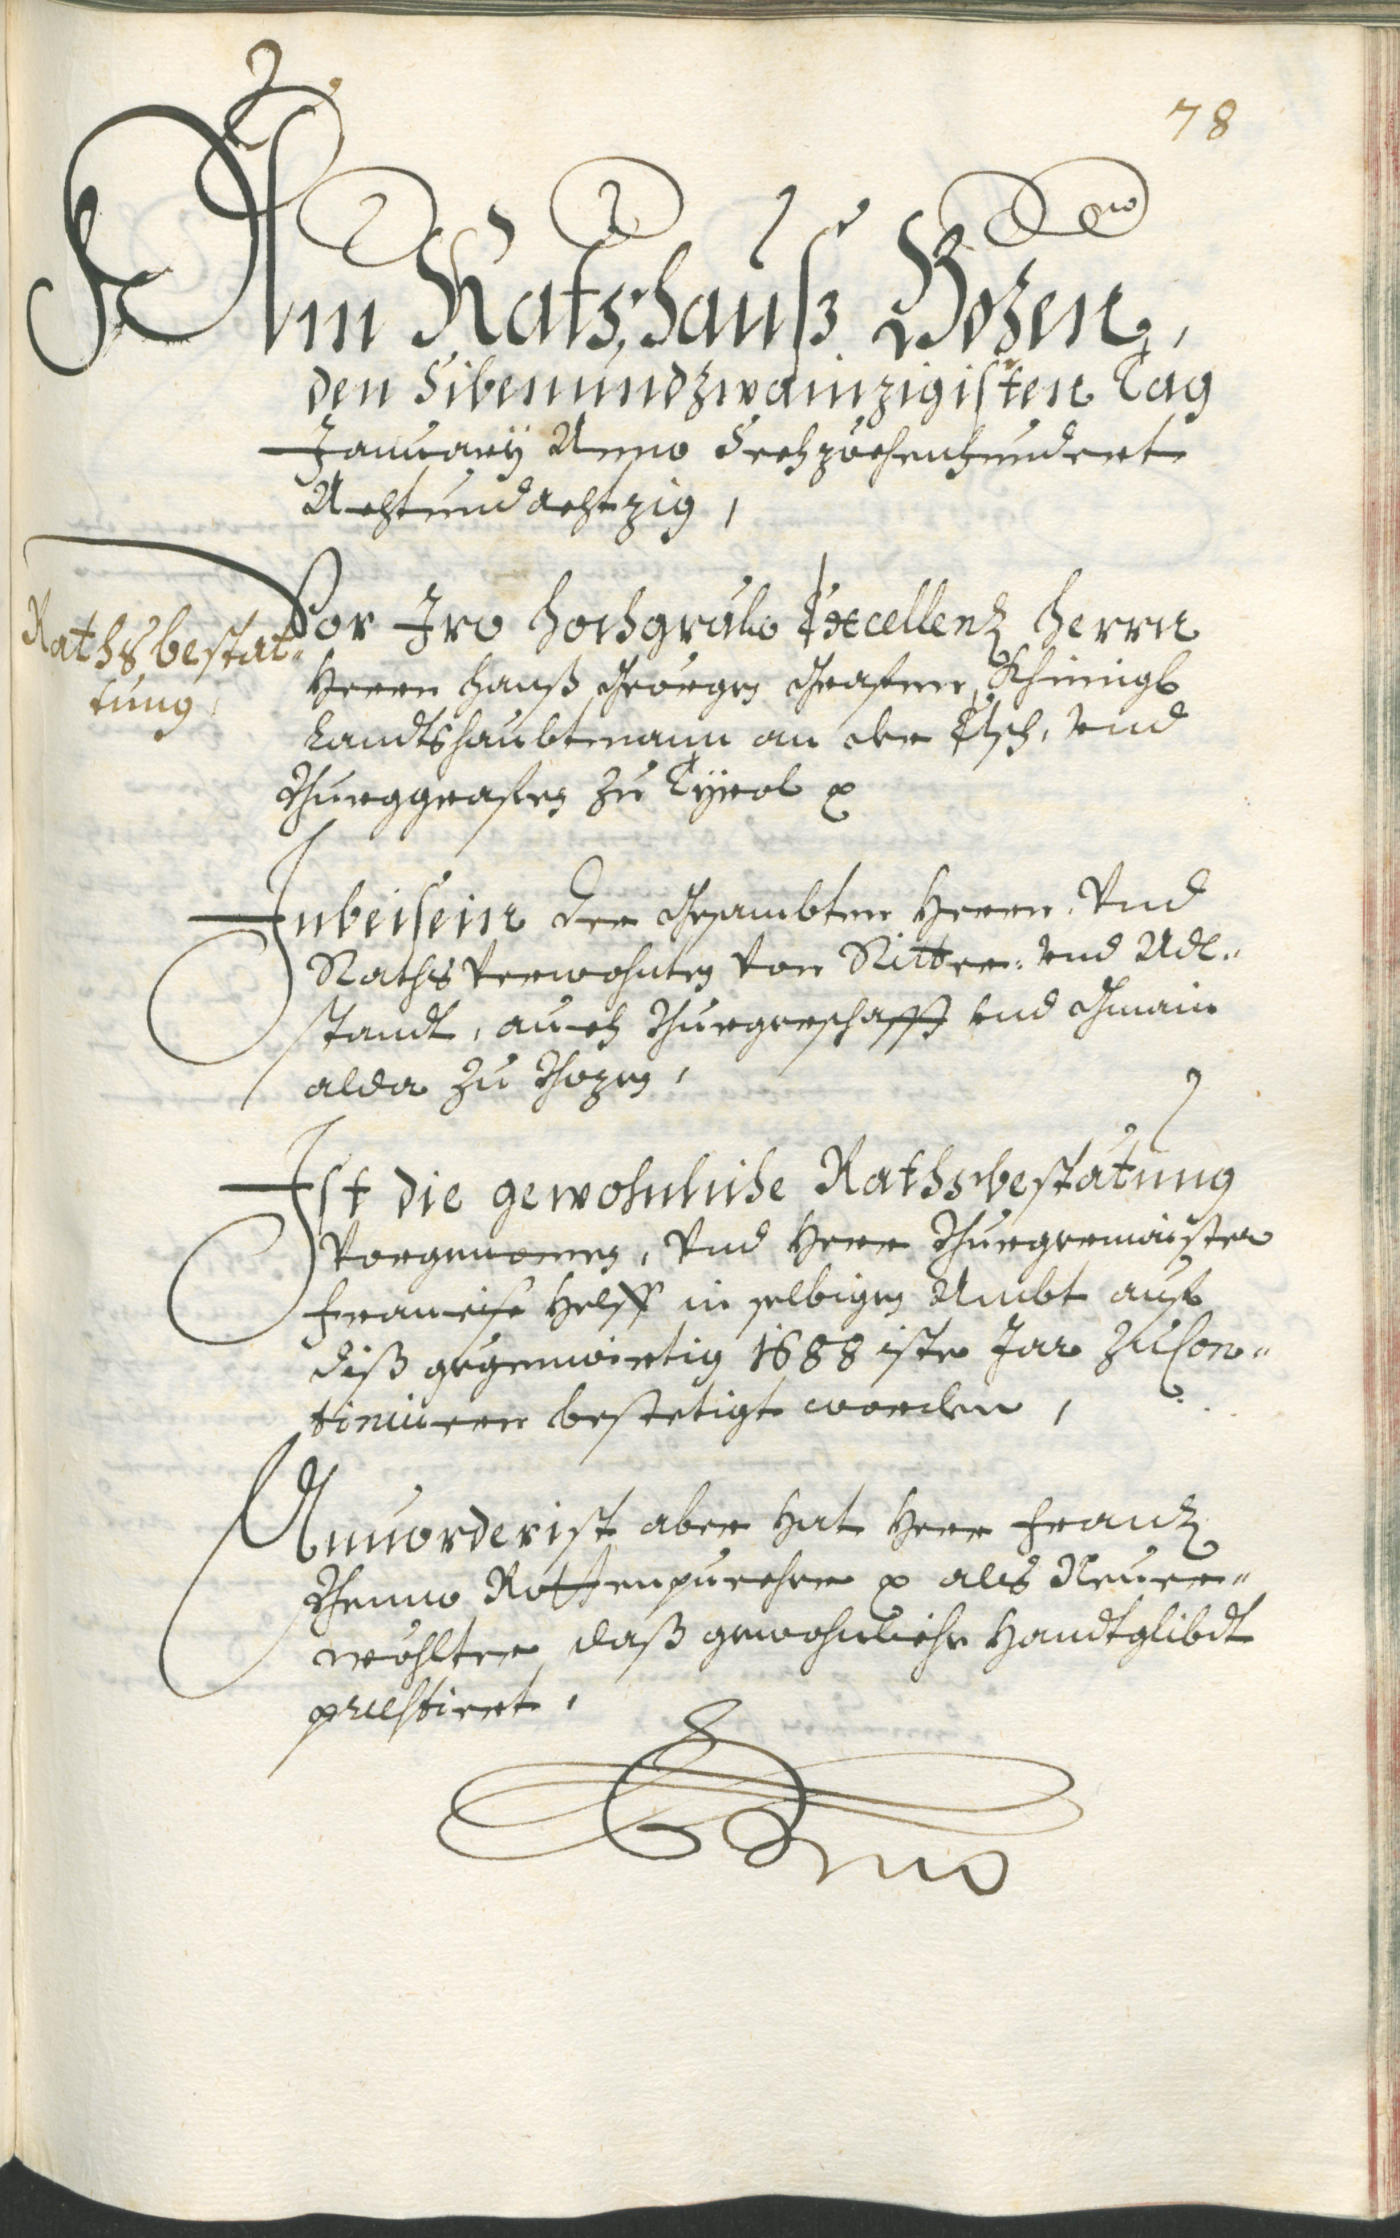 78
Am Ratshauß Bozen,
den Sibenundzwainzigisten Tag
January Anno Sechzöchenhundert
Achtundachtzig,
Rathsbestät-
tung,
Vor Iro hochgräfl. Excellenz herrn
Herrn Hanß Geörgen Grafen Khünigl
Landtshaubtmann an der Etsch, vnd
Burggrafen zu Tyrol
Inbeisein der Gesambten Herrn, Vnd
Rathsverwohnten von Ritter: vnd Adl-
standt, auch Burgerschafft vnd Gmain
alda zu Bozen,
Ist die gewohnliche Rathsbestätung
vorgenomen, Vnd Herr Burgermaister
Francisc Helff in selbigen Ambt auf
diß gegenwirtig 1688 iste Jar zu Con-
tinuiern bestetigt worden,
Anuorderist aber hat Herr Franz
Rottenpurcher als Neuer-
wöhlter daß gewohnliche Handtglibdt
præstiert,